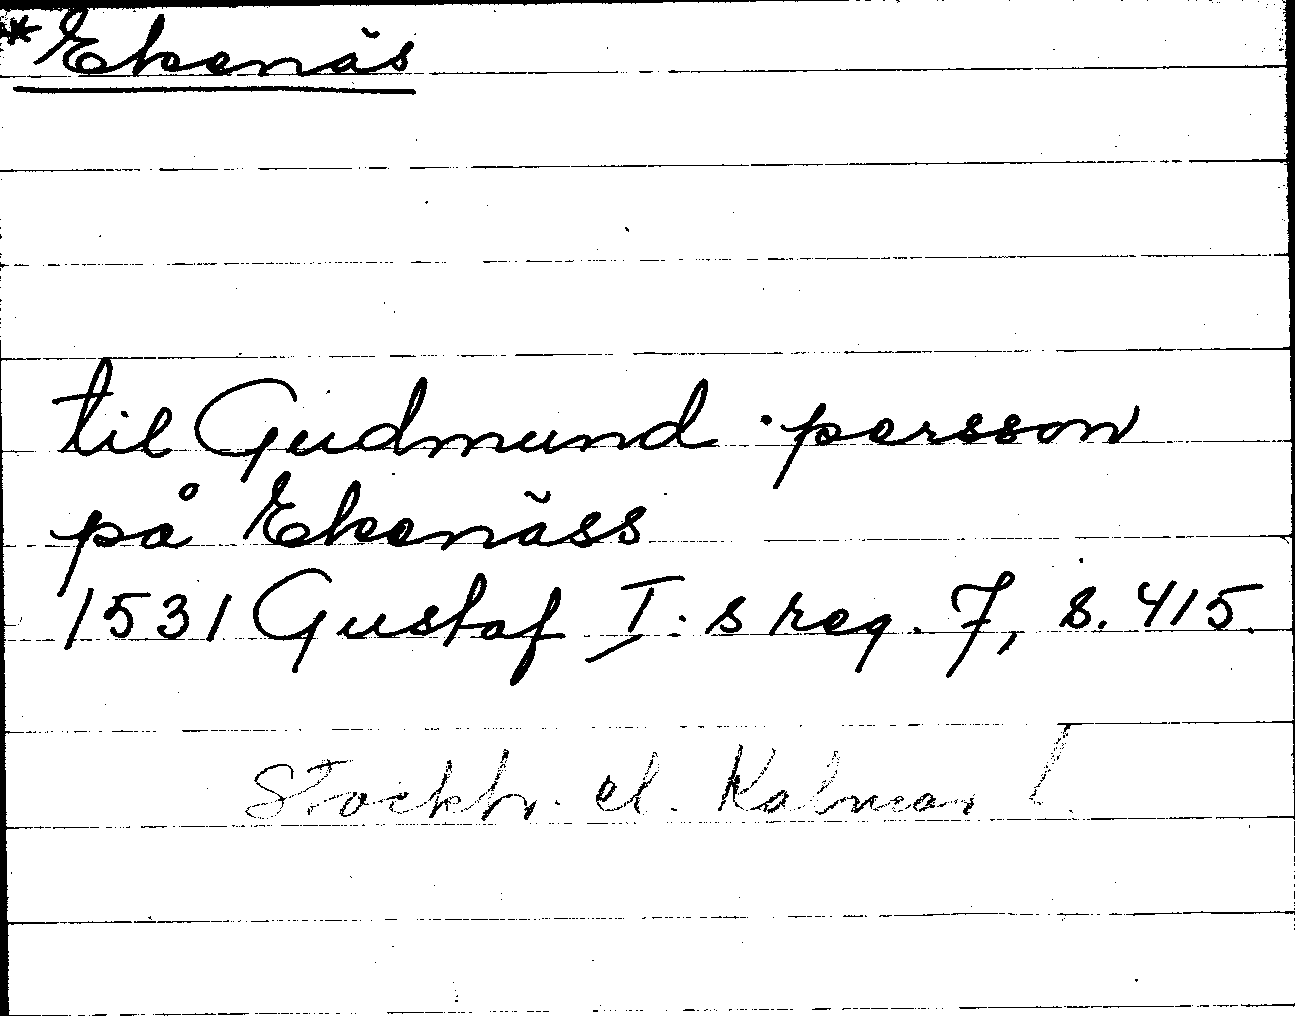 *Ekenäs
til Gudmund persson
på Ekenäss
1531 Gustaf I:s reg. 7, s. 415.
Stockh. el. Kalmar l.